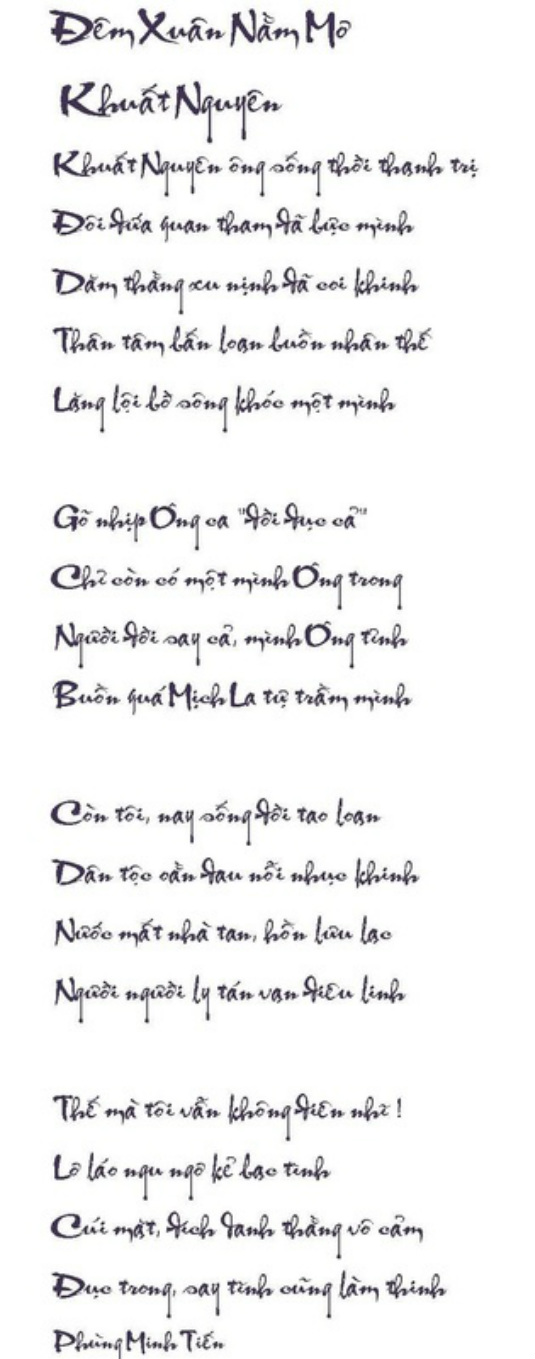 Đêm Xuân Nằm Mơ
Khuất Nguyên
Khuất Nguyên ông sống thời thạnh trị
Đôi đứa quan tham đã bực mình
Dăm thằng xu nịnh đã coi khinh
Thân tâm bấn loạn buồn nhân thế
Lặng lội bờ sông khóc một mình
Gõ nhịp Ông ca "đời đục cả"
Chỉ còn có một mình Ông trong
Người đời say cả, mình Ông tỉnh
Buồn quá Mịch La tự trầm mình
Còn tôi, nay sống đời tao loạn
Dân tộc oằn đau nỗi nhục khinh
Nước mất nhà tan, hồn lưu lạc
Người người ly tán vạn điêu linh
Thế mà tôi vẫn không điên nhĩ !
Lơ láo ngu ngơ kẻ bạc tình
Cúi mặt, đích danh thằng vô cảm
Đục trong, say tỉnh cũng làm thinh
Phùng Minh Tiến